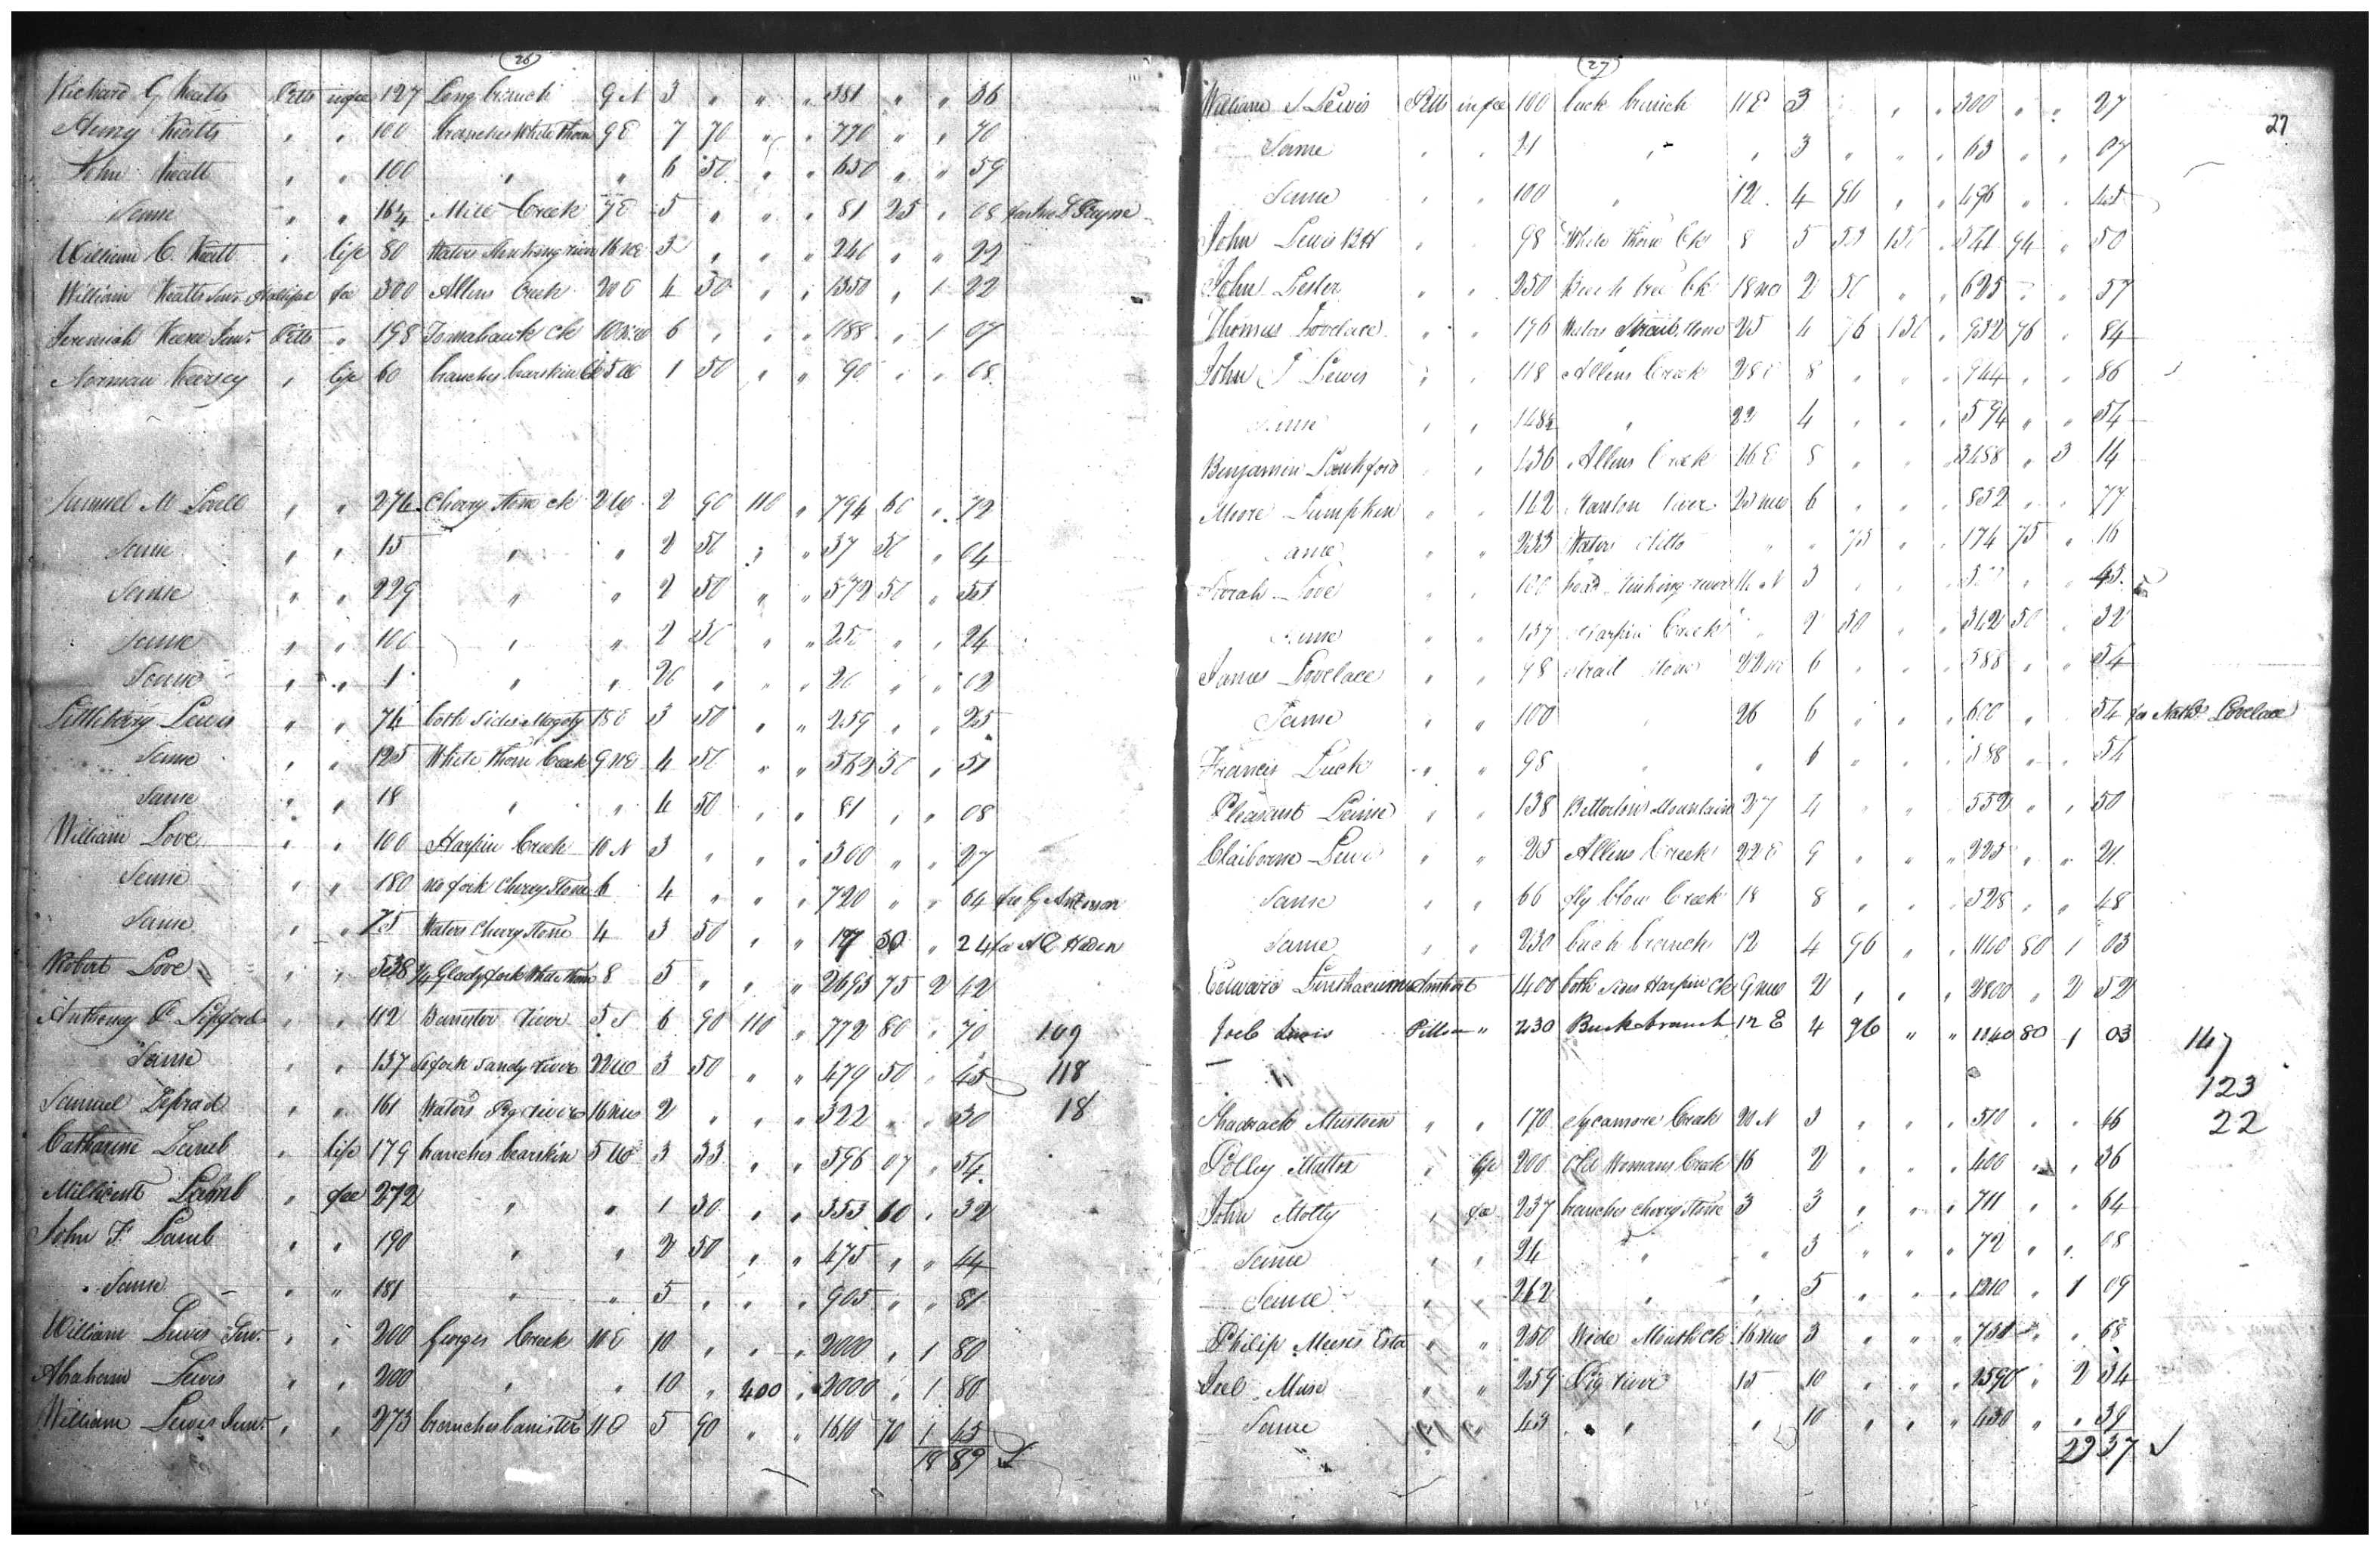 26
Richard G Keatts Pitts in fee 127 Long branch 9 N 3 " " " 381 " " 36
Henry Keatts " " 100 branches White Thorn 9 E 7 70 " " 770 " " 70
John Keatt " " 100 " " 6 50 " " 650 " " 59
Same " " 16¼ Mill Creek 7 E 5 " " " 81 25 " 08
William C. Keatt " life 80 Waters Stinking river 16 NE 3 " " " 240 " " 22
William Keatts Senr. Halifax fee 300 Allens Creek 20 E 4 50 " " 1350 " 1 22
Jeremiah Keene Senr. Pitts " 198 Tomahawk ck 10 NW 6 " " " 1188 " 1 07
Norman Kearsey " life 60 branches bearskin Ck 5 W 1 50 " " 90 " " 08
Samuel M Lovell " " 274 Cherry Stone ck 2 W 2 90 110 " 794 60 " 72
Same " " 15 " " 2 50 " " 37 50 " 04
Same " " 229 " " 2 50 " " 572 50 "
Same " " 100 " " 2 50 " " 250 " " 24
Same " " 1 " " 20 " " " 20 " " 02
Littleberry Lewis " " 74 both sides Magoty 15 E 3 50 " " 259 " " 25
Same " " 125 White Thorn Creek 9 NE 4 50 " " 562 50 " 51
Same " " 18 " " 4 50 " " 81 " " 08
William Love " " 100 Harpin Creek 10 N 3 " " " 300 " " 27
Same " " 180 no fork Cherry Stone 6 4 " " " 720 " " 64
Same " " 75 Waters Cherry Stone 4 3 50 " " 50 " 24 for A C Haden
Robert Love " " 538¾ Glady fork White Thorn 8 5 " " " 2693 75 2 42
Anthony P. " " 112 Banister river 5 S 6 90 110 " 772 80 " 70 109
Same " " 137 So fork Sandy river 22 W 3 50 " " 479 50 " 45 118
Samuel " " 161 Waters Pig river 16 NW 2 " " " 322 " " 30 18
Catharine Lamb " life 179 branches bearskin 5 W 3 33 " " 596 07 " 54
Millicent Lamb " fee 272 " " 1 30 " " 353 60 " 32
John F Lamb " " 190 " " 2 50 " " 475 " " 44
Same " " 181 " " 5 " " " 905 " " 81
William Lewis Senr. " " 200 Georges Creek 10 E 10 " " " 2000 " 1 80
Abraham Lewis " " 200 " " 10 " 400 " 2000 " 1 80
William Lewis Junr. " " 273 branches banister 11 E 5 90 " " 1610 70 1 45
18 89
27
27
William S Lewis Pitts in fee 100 buck branch 11 E 3 " " 300 " " 27
Same " " 21 " " 3 " " " 63 " " 07
Same " " 100 " 12 4 96 " " 496 " " 45
John Lewis " " 98 White Thorn Ck 8 5 53 150 " 541 94 " 50
John Lester " " 250 Beech tree Ck 18 NE 2 50 " " 625 " " 57
Thomas Lovelace " " 196 Waters Strait Stone 25 4 76 150 " 932 76 " 84
John T Lewis " " 118 Allens Creek 28 E 8 " " " 944 " " 86
Same " " 148½ " 23 4 " " " 594 " " 54
Benjamin Lankford " " 436 Allens Creek 16 E 8 " " " 3488 " 3 14
Moore Lumpkin " " 142 Stanton river 25 NW 6 " " " 852 " " 77
Same " " 233 Waters ditto " " 75 " " 174 75 " 16
Love " " head Stinking river 16 N 3 " " " " " 45
Same " " Harpin Creek " 2 50 " " 342 50 " 32
James Lovelace " " 98 Strait Stone 22 NE 6 " " " 588 " " 54
Same " " 100 " 26 6 " " " 600 " " 54 for Nathl Lovelace
Francis Luck " " 98 " " 6 " " " 588 " " 54
Pleasant Laine " " 138 Betterton Mountain 27 4 " " " 552 " " 50
Claiborne Lewis " " 25 Allens Creek 22 E 9 " " " 225 " " 21
Same " " 66 fly blow Creek 18 8 " " " 528 " " 48
Same " " 230 buck branch 12 4 96 " " 1140 80 1 03
Edward Linthacum Amherst 1400 both sides Harpin Ck 9 NW 2 " " " 2800 " 2 52
Joel Lewis Pittsa " 230 Buck branch 12 E 4 96 " " 1140 80 1 03 147
123
Shadrack Mustein " " 170 Sycamore Creek 20 N 3 " " " 510 " " 46 22
Polley Mattox " life 200 Old Womans Creek 16 2 " " " 400 " " 36
John Motty " fee 237 branches Cherry Stone 3 3 " " " 711 " " 64
Same " " 24 " " 3 " " " 72 " " 08
Same " " 242 " " 5 " " " 1210 " 1 09
Philip Muses Esta " " 250 Wide Mouth ck 16 NW 3 " " " " " 68
Joel Muse " " 259 Pig river 15 10 " " " 2590 " 2 34
Same " " 43 " " 10 " " " 430 " " 39
29 37